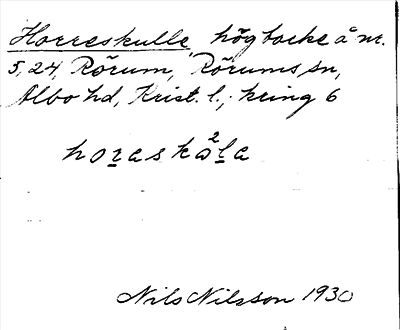 Horreskulle, hög backe å nr.
5, 24, Rörum, Rörums sn,
Albo hd, Krist. l., kring 6
horaskå²la
Nils Nilsson 1930